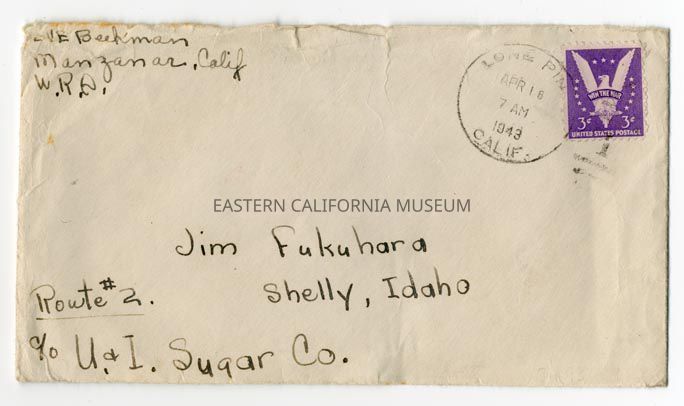 Beekman
Manzanar, Calif
W.R.A.
LONE PINE
APR 16
7 AM
1943
CALIF.
WIN THE WAR
3¢ 3¢
UNITED STATES POSTAGE
1
EASTERN CALIFORNIA MUSEUM
Jim Fukuhara
Route #2. Shelly, Idaho
c/o U. & I. Sugar Co.